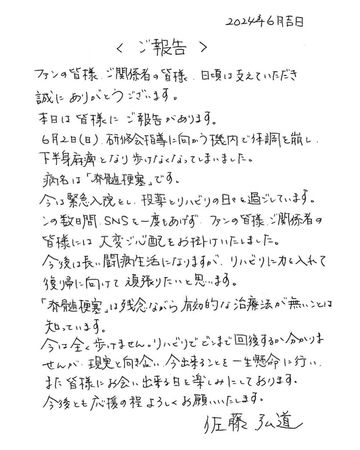 2024年6月吉日
＜ご報告＞
ファンの皆様、ご関係者の皆様、日頃は支えていただき
誠にありがとうございます。
本日は皆様にご報告があります。
6月2日(日)、研修会指導に向かう機内で体調を崩し、
下半身麻痺となり歩けなくなってしまいました。
病名は「脊髄梗塞」です。
今は緊急入院をし、投薬とリハビリの日々を過ごしています。
この数日間、SNSを一度もあげず、ファンの皆様、ご関係者の
皆様には大変ご心配をお掛けいたしました。
今後は長い闘病生活になりますが、リハビリに力を入れて
復帰に向けて頑張りたいと思います。
「脊髄梗塞」は残念ながら有効的な治療法が無いことは
知っています。
今は全く歩けません。リハビリでどこまで回復するか分かりま
せんが、現実と向き合い、今出来ることを一生懸命に行い、
また皆様にお会い出来る日を楽しみにしております。
今後とも応援の程よろしくお願いいたします。
佐藤弘道